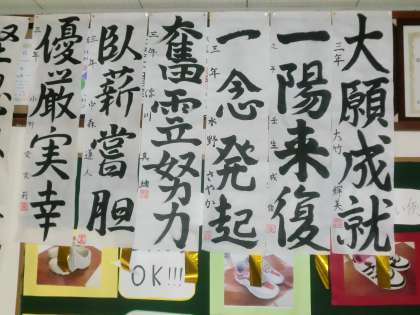 大願成就
三年 大竹 輝美
一陽来復
壬生
一念発起
三年 水野さやか
奮 努力
三年
臥薪嘗胆
三年 中森 達人
優厳実幸
三年 小野
OK!!!